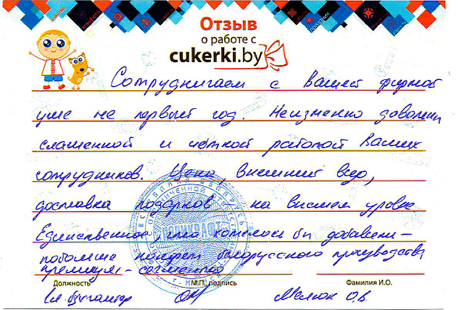 Отзыв
о работе с
cukerki.by
Сотрудничаем с вашей фирмой
уже не первый год. Неизменно довольны
слаженной и чёткой работой Ваших
сотрудников. Цена, внешний вид,
доставка подарков на высшем уровне
Единственное, что хотелось бы добавить –
побольше конфет белорусского производства
премиум-
Должность М.П. подпись Фамилия И.О.
Гл. бухгалтер О.В.